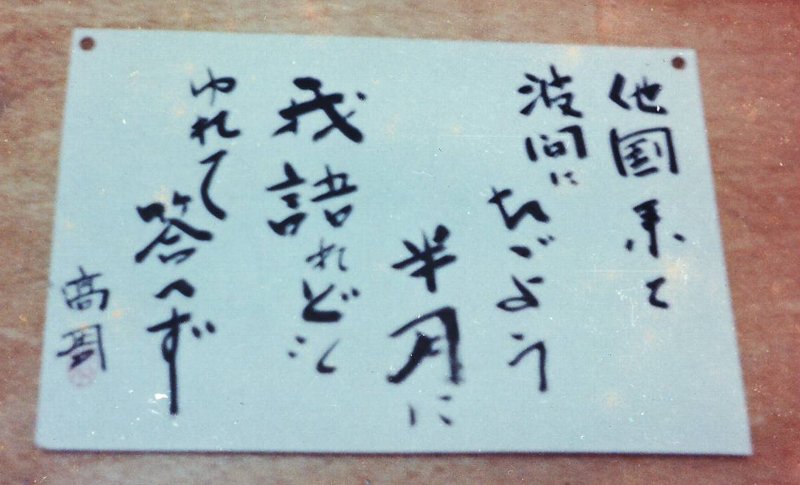 他国来て
波間にたゞよう
半月に
我語れども
ゆれて答へず